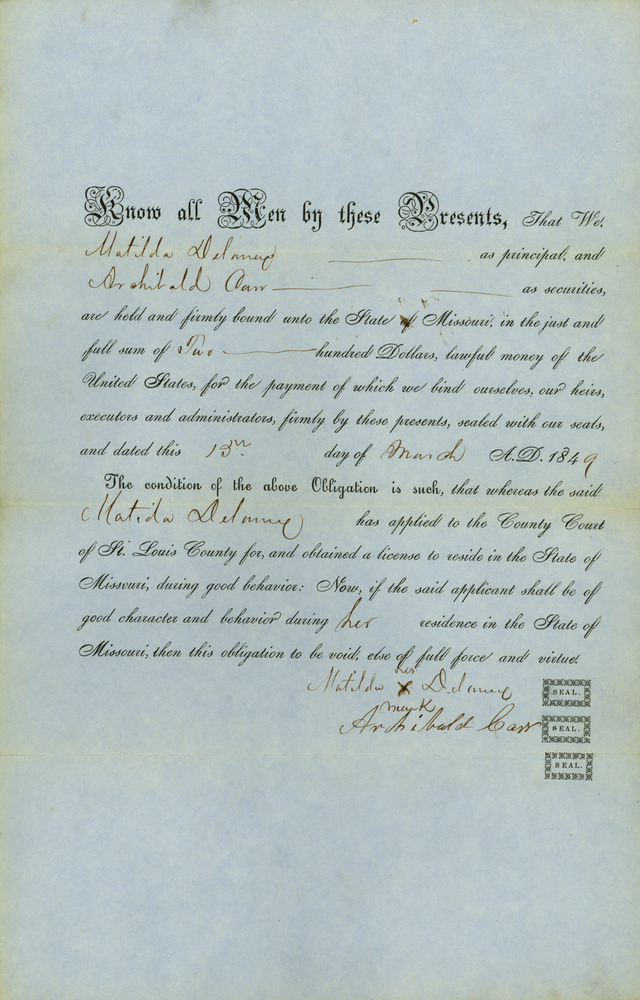 Know all Men by these Presents, That We,
Matilda Delaney as principal, and
Archibald Carr as securities,
are held and firmly bound unto the State of Missouri, in the just and
full sum of Two hundred Dollars, lawful money of the
United States, for the payment of which we bind ourselves, our heirs,
executors and administrators, firmly by these presents, sealed with our seals,
and dated this 13th day of March A.D. 1849
The condition of the above Obligation is such, that whereas the said
Matilda Delaney has applied to the County Court
of St. Louis County for, and obtained a license to reside in the State of
Missouri, during good behavior: Now, if the said applicant shall be of
good character and behavior during her residence in the State of
Missouri, then this obligation to be void, else of full force and virtue.
her
Matilda X Delaney SEAL.
mark
Archibald Carr SEAL.
SEAL.